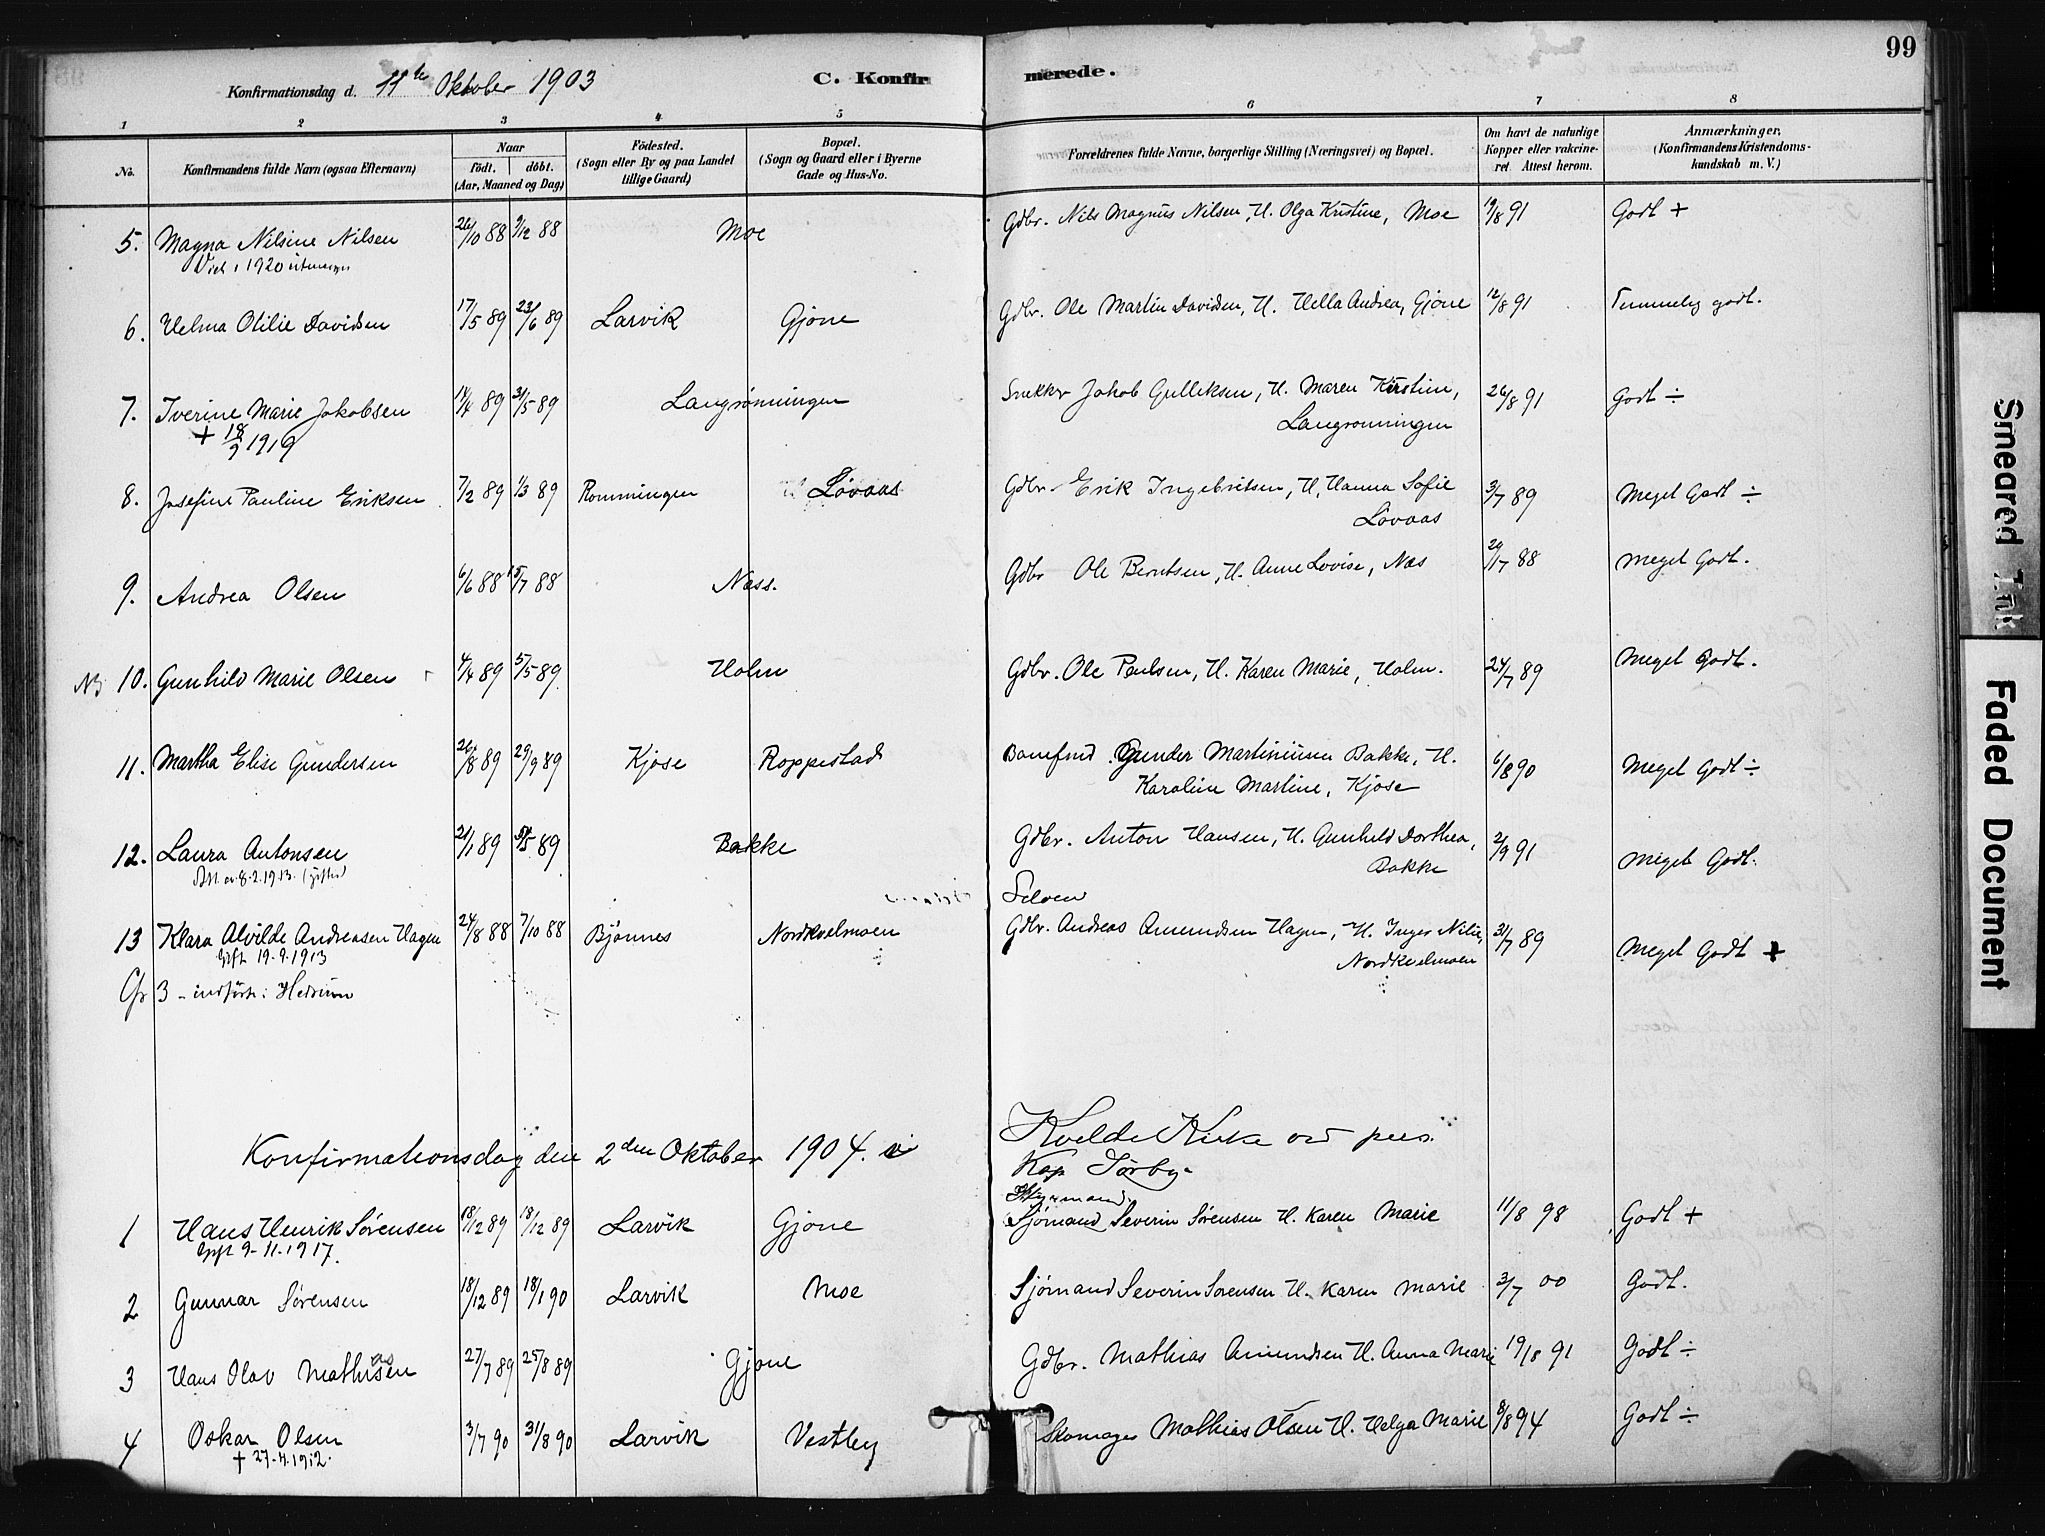 99
Konfirmationsdag d. 11te Oktober 1903 C. Konfirmerede.
1 2 3 4 5 6 7 8
No.
Konfirmandens fulde Navn (ogsaa Efternavn)
Naar
födt. döbt.
(Aar, Maaned og Dag)
Födested.
(Sogn eller By og paa Landet
tillige Gaard)
Bopæl.
(Sogn og Gaard eller i Byerne
Gade og Hus-No.
Forældrenes fulde Navne, borgerlige Stilling (Næringsvei) og Bopæl.
Om havt de naturlige
Kopper eller vakcine-
ret Attest herom.
Anmærkninger,
(Konfirmandens Kristendoms-
kundskab m. V.)
5. Magna Nilsine Nilsen 26/10 88 9/12 88 Moe Gdbr. Nils Magnus Nilsen, H. Olga Kristine, Moe 19/8 91 Godt +
1920
6. Helma Otilie Davidsen 17/5 89 23/6 89 Larvik Gjöne Gdbr. Ole Martin Davidsen, H. Hella Andrea, Gjöne 12/8 91 Temmelig godt.
7. Iverine Marie Jakobsen 14/4 89 31/5 89 Langrønningen Snekker Jakob Gulliksen, H. Maren Kirstine, 26/8 91 Godt ÷
Langrønningen
+ 18/9 1919
8. Josefine Pauline Eriksen 7/2 89 1/3 89 Rønningen Løvaas Gdbr. Erik Ingebretsen, H. Hanna Sofie 3/7 89 Meget Godt ÷
Løvaas
9. Andrea Olsen 6/6 88 15/7 88 Næss. Gdbr Ole Berntsen, H. Anne Lovise, Næs 20/17 88 Meget Godt.
NB 10. Gunhild Marie Olsen 4/4 89 5/5 89 Holm Gdbr. Ole Paulsen, H. Karen Marie, Holm. 24/7 89 Meget Godt.
11. Martha Elise Gundersen 26/8 89 29/9 89 Kjose Roppestad Banefmd. Gunder Martiniusen Bakke, H. 6/8 90 Meget Godt ÷
Karoline Martine, Kjose
12. Laura Antonsen 21/1 89 5/5 89 Bakke Gdbr. Anton Hansen, H. Gunhild Dorthea, 2/9 91 Meget Godt.
Bakke
Att. av 8.2.1913. (gifte)
Seloen
13 Klara Alvilde Andreasen Hagen 24/8 88 7/10 88 Bjönnes Nordkvelmoen Gdbr. Andreas Amundsen Hagen, H. Inger Nilie, 31/7 89 Meget Godt +
Nordkvelmoen
Gift 19.9.1913
Cfr 3 - indført i Hedrum
Konfirmationsdag den 2den Oktober 1904. i Kvelde Kirke ved pers.
Kap Sørby.
Styrmand
1 Hans Henrik Sørensen 18/12 89 18/12 89 Larvik Gjøne Sjømand Severin Sørensen H. Karen Marie 11/8 98 Godt +
Gift 9-11-1917.
2 Gunnar Sørensen 18/12 89 18/1 90 Larvik Moe Sjømand Severin Sørensen H. Karen Marie 3/7 00 Godt.
3 Hans Olav Mathisen 27/7 89 25/8 89 Gjøne Gdbr. Mathias Amundsen H. Anna Marie 19/8 91 Godt ÷
4 Oskar Olsen 3/7 90 31/8 90 Larvik Vestby Skomager Mathias Olsen H. Helga Marie 8/8 94 Godt ÷
+ 27-4.1912.
Smeared Ink
Faded Document